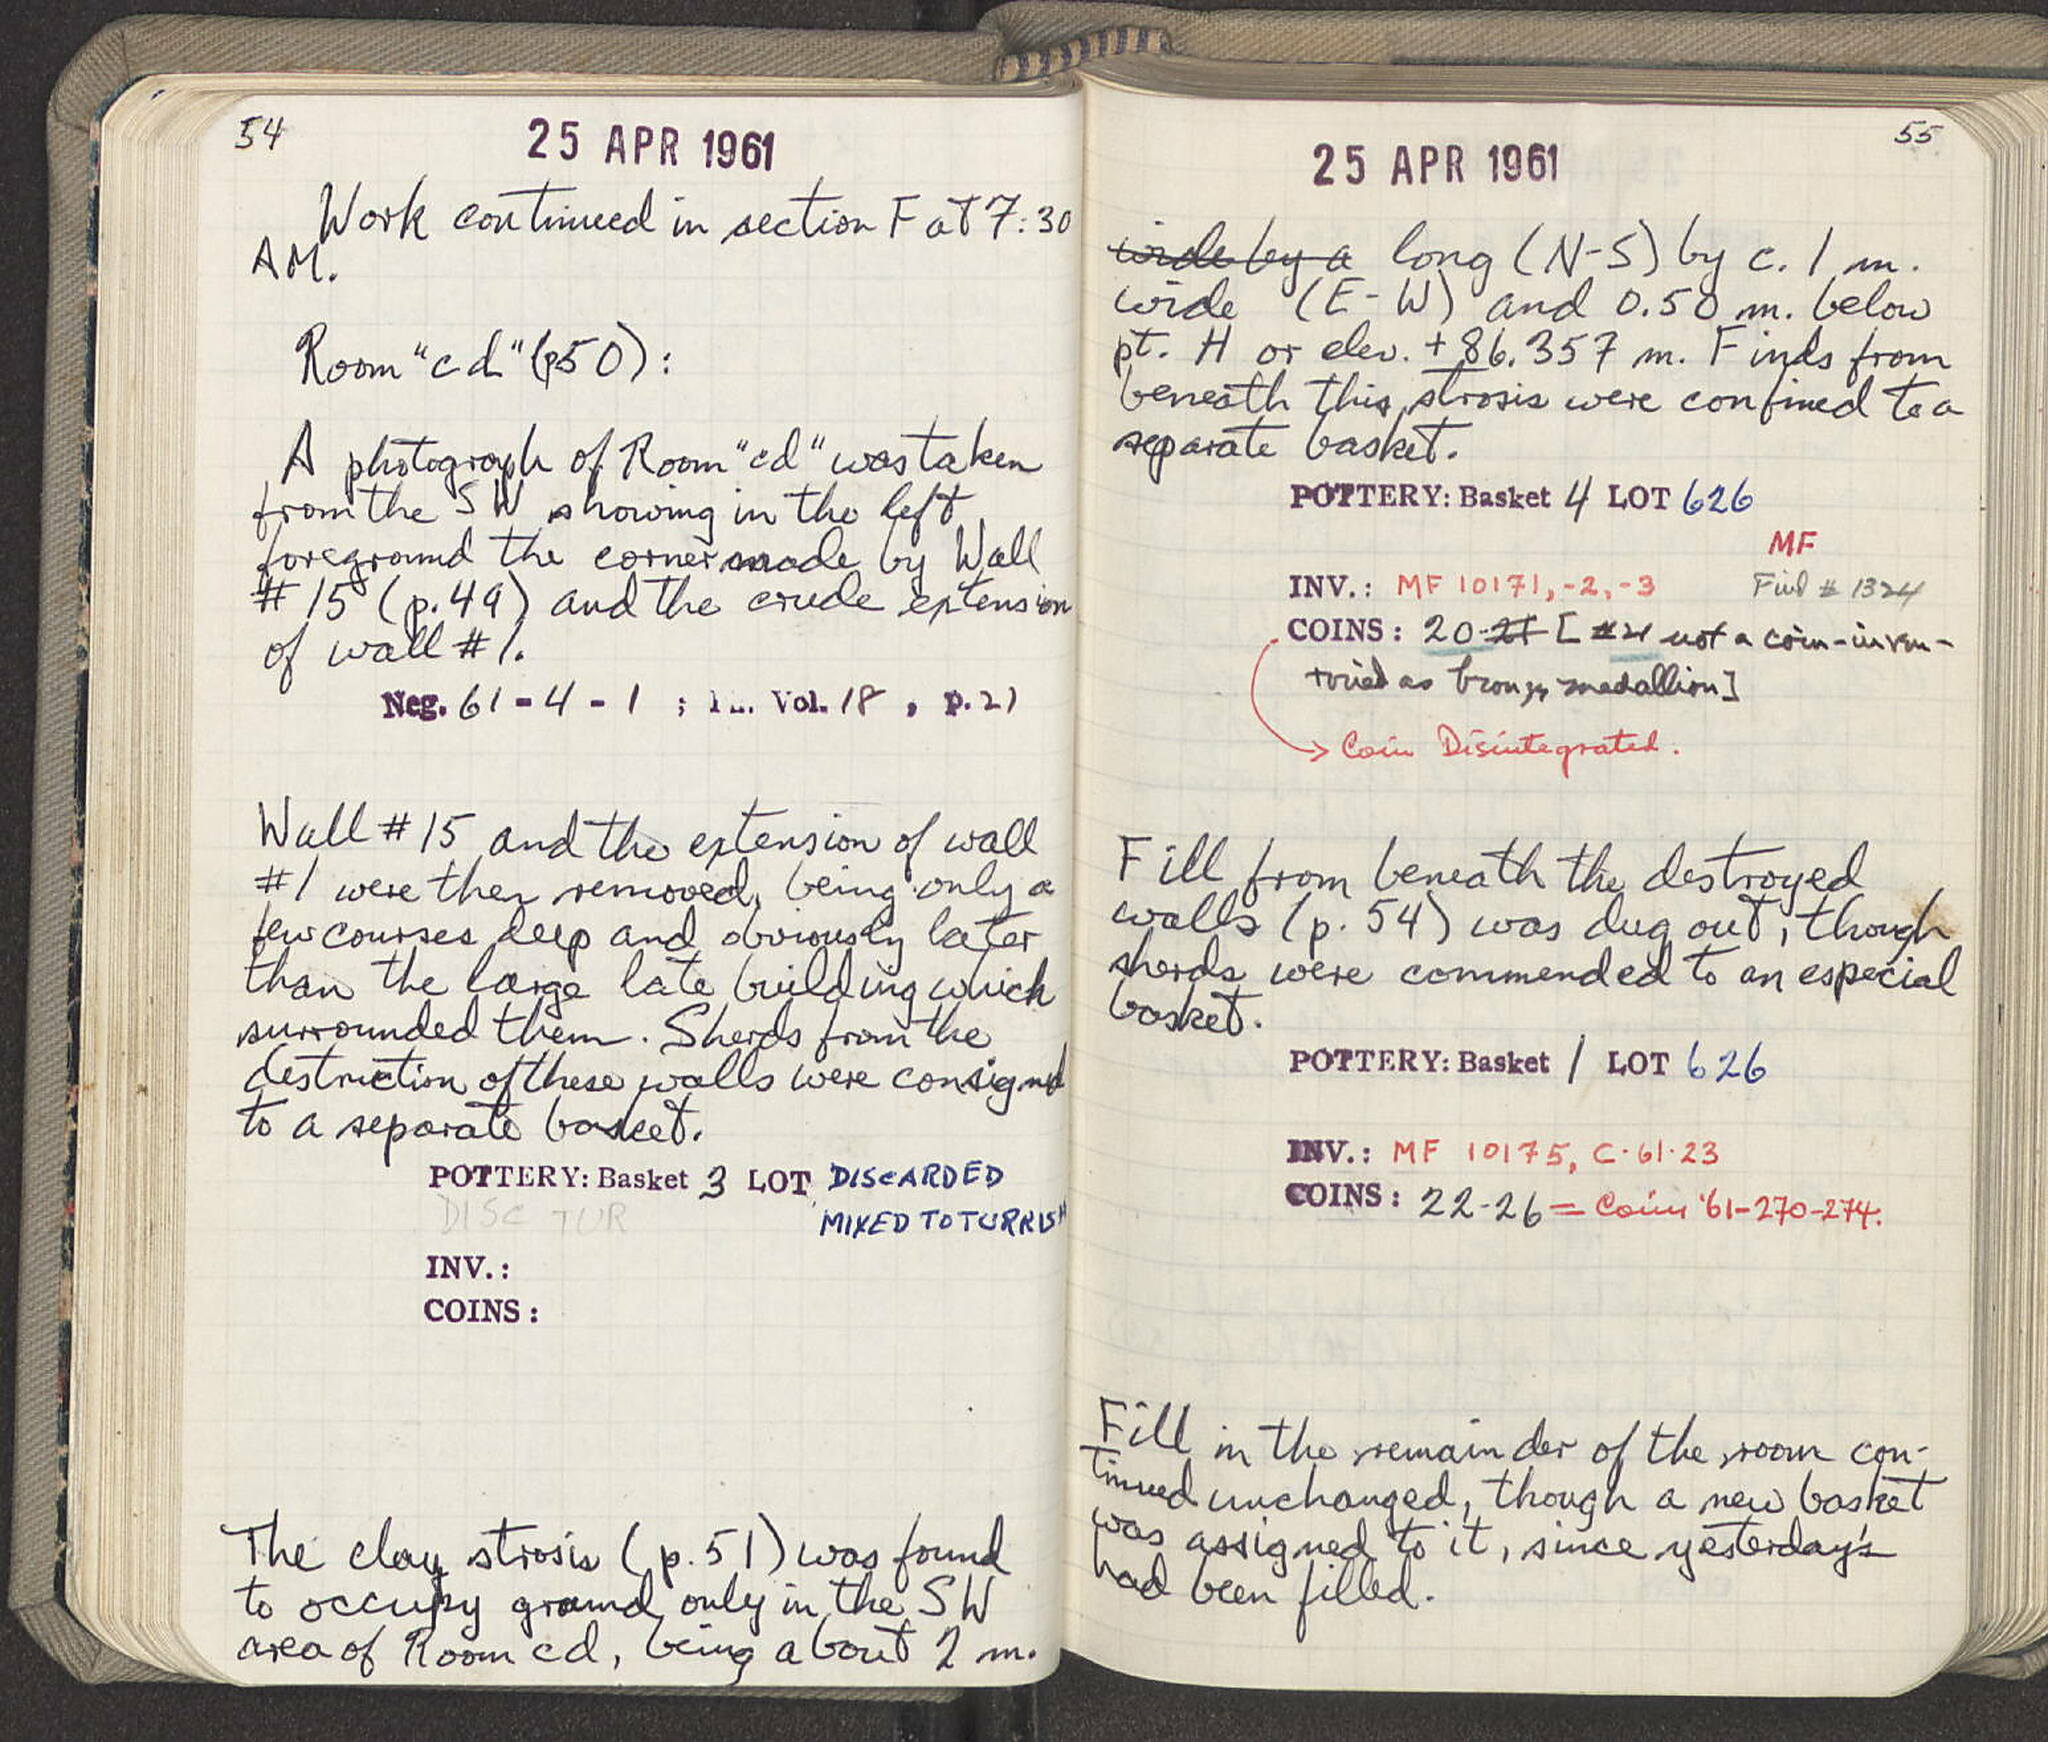 54
25 APR 1961
Work continued in section F at 7:30
AM.
Room "cd" (p50):
A photograph of Room "cd" was taken
from the SW showing in the left
foreground the corner made by Wall
# 15 (p. 49) and the crude extension
of wall # 1.
Neg. 61 - 4 - 1 ; Vol. 18 , p. 21
Wall # 15 and the extension of wall
#1 were then removed, being only a
few courses deep and obviously later
than the large late building which
surrounded them. Sherds from the
destruction of these walls were consigned
to a separate basket.
POTTERY: Basket 3 LOT DISCARDED
DISC TUR MIXED TO TURKISH
INV.:
COINS:
The clay strosis (p. 51) was found
to occupy ground only in the SW
area of Room cd, being about 2 m.
55
25 APR 1961
wide by a long (N-S) by c. 1 m.
wide (E-W) and 0.50 m. below
pt. H or elev. +86.357 m. Finds from
beneath this strosis were confined to a
separate basket.
POTTERY: Basket 4 LOT 626
MF
INV.: MF 10171, -2, -3 Find # 1324
COINS: 20-21 [#21 not a coin-inven-
toried as bronze medallion]
→ Coin Disintegrated.
Fill from beneath the destroyed
walls (p. 54) was dug out, though
sherds were commended to an especial
basket.
POTTERY: Basket 1 LOT 626
INV.: MF 10175, C·61·23
COINS: 22-26 = Coin '61-270-274.
Fill in the remainder of the room con-
tinued unchanged, though a new basket
was assigned to it, since yesterday's
had been filled.